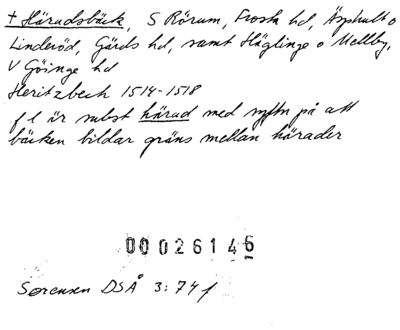 + Häradsbäck, S Rörum, Frosta hd, Äsphult o
Linderöd, Gärds hd, samt Häglinge o Mellby,
V Göinge hd
Heritzbech 1514-1518
f l är subst härad med syftn på att
bäcken bildar gräns mellan härader
00026146
Sørensen DSÅ 3:74 f